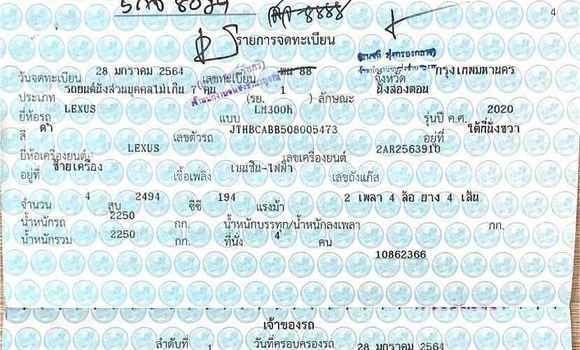 4
รายการจดทะเบียน
วันจดทะเบียน 28 มกราคม 2564 เลขทะเบียน 88 จังหวัด กรุงเทพมหานคร
ประเภท รถยนต์นั่งส่วนบุคคลไม่เกิน 7 คน (รย. 1 ) ลักษณะ นั่งสองตอน
ยี่ห้อรถ LEXUS แบบ LM300h รุ่นปี ค.ศ. 2020
สี ดำ เลขตัวรถ JTHBCABB508005473 อยู่ที่ ใต้ที่นั่งขวา
ยี่ห้อเครื่องยนต์ LEXUS เลขเครื่องยนต์ 2AR2563910
อยู่ที่ ซ้ายเครื่อง เชื้อเพลิง เบนซิน-ไฟฟ้า เลขถังแก๊ส
จำนวน 4 สูบ 2494 ซีซี 194 แรงม้า 2 เพลา 4 ล้อ ยาง 4 เส้น
น้ำหนักรถ 2250 กก. น้ำหนักบรรทุก/น้ำหนักลงเพลา กก.
น้ำหนักรวม 2250 กก. ที่นั่ง 4 คน
10862366
เจ้าของรถ
ลำดับที่ 1 วันที่ครอบครองรถ 28 มกราคม 2564